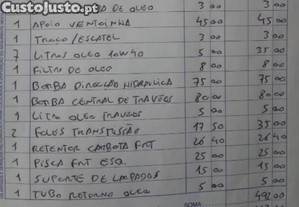 CustoJusto.pt
DE OLEO 3 00 3 00
1 APOIO VENTOINHA 45 00 45 00
1 TRACO/ESCATEL 3 00 3 00
7 LITROS OLEO 10W40 5 00 35 00
1 FILTRO DE OLEO 8 00 8 00
1 BOMBA DIRECÇÃO HIDRAULICA 75 00 75 00
1 BOMBA CENTRAL DE TRAVÕES 80 00 80 00
1 LITRO OLEO TRAVÕES 5 00 5 00
2 FOLES TRANSMISSÃO 17 50 35 00
1 RETENTOR CAMBOTA FRT 26 40 26 40
1 PISCA FRT ESQ. 25 00 25 00
1 SUPORTE DE LAMPADAS 15 00 15 00
1 TUBO RETORNO OLEO 5 00 5 00
SOMA 492 00